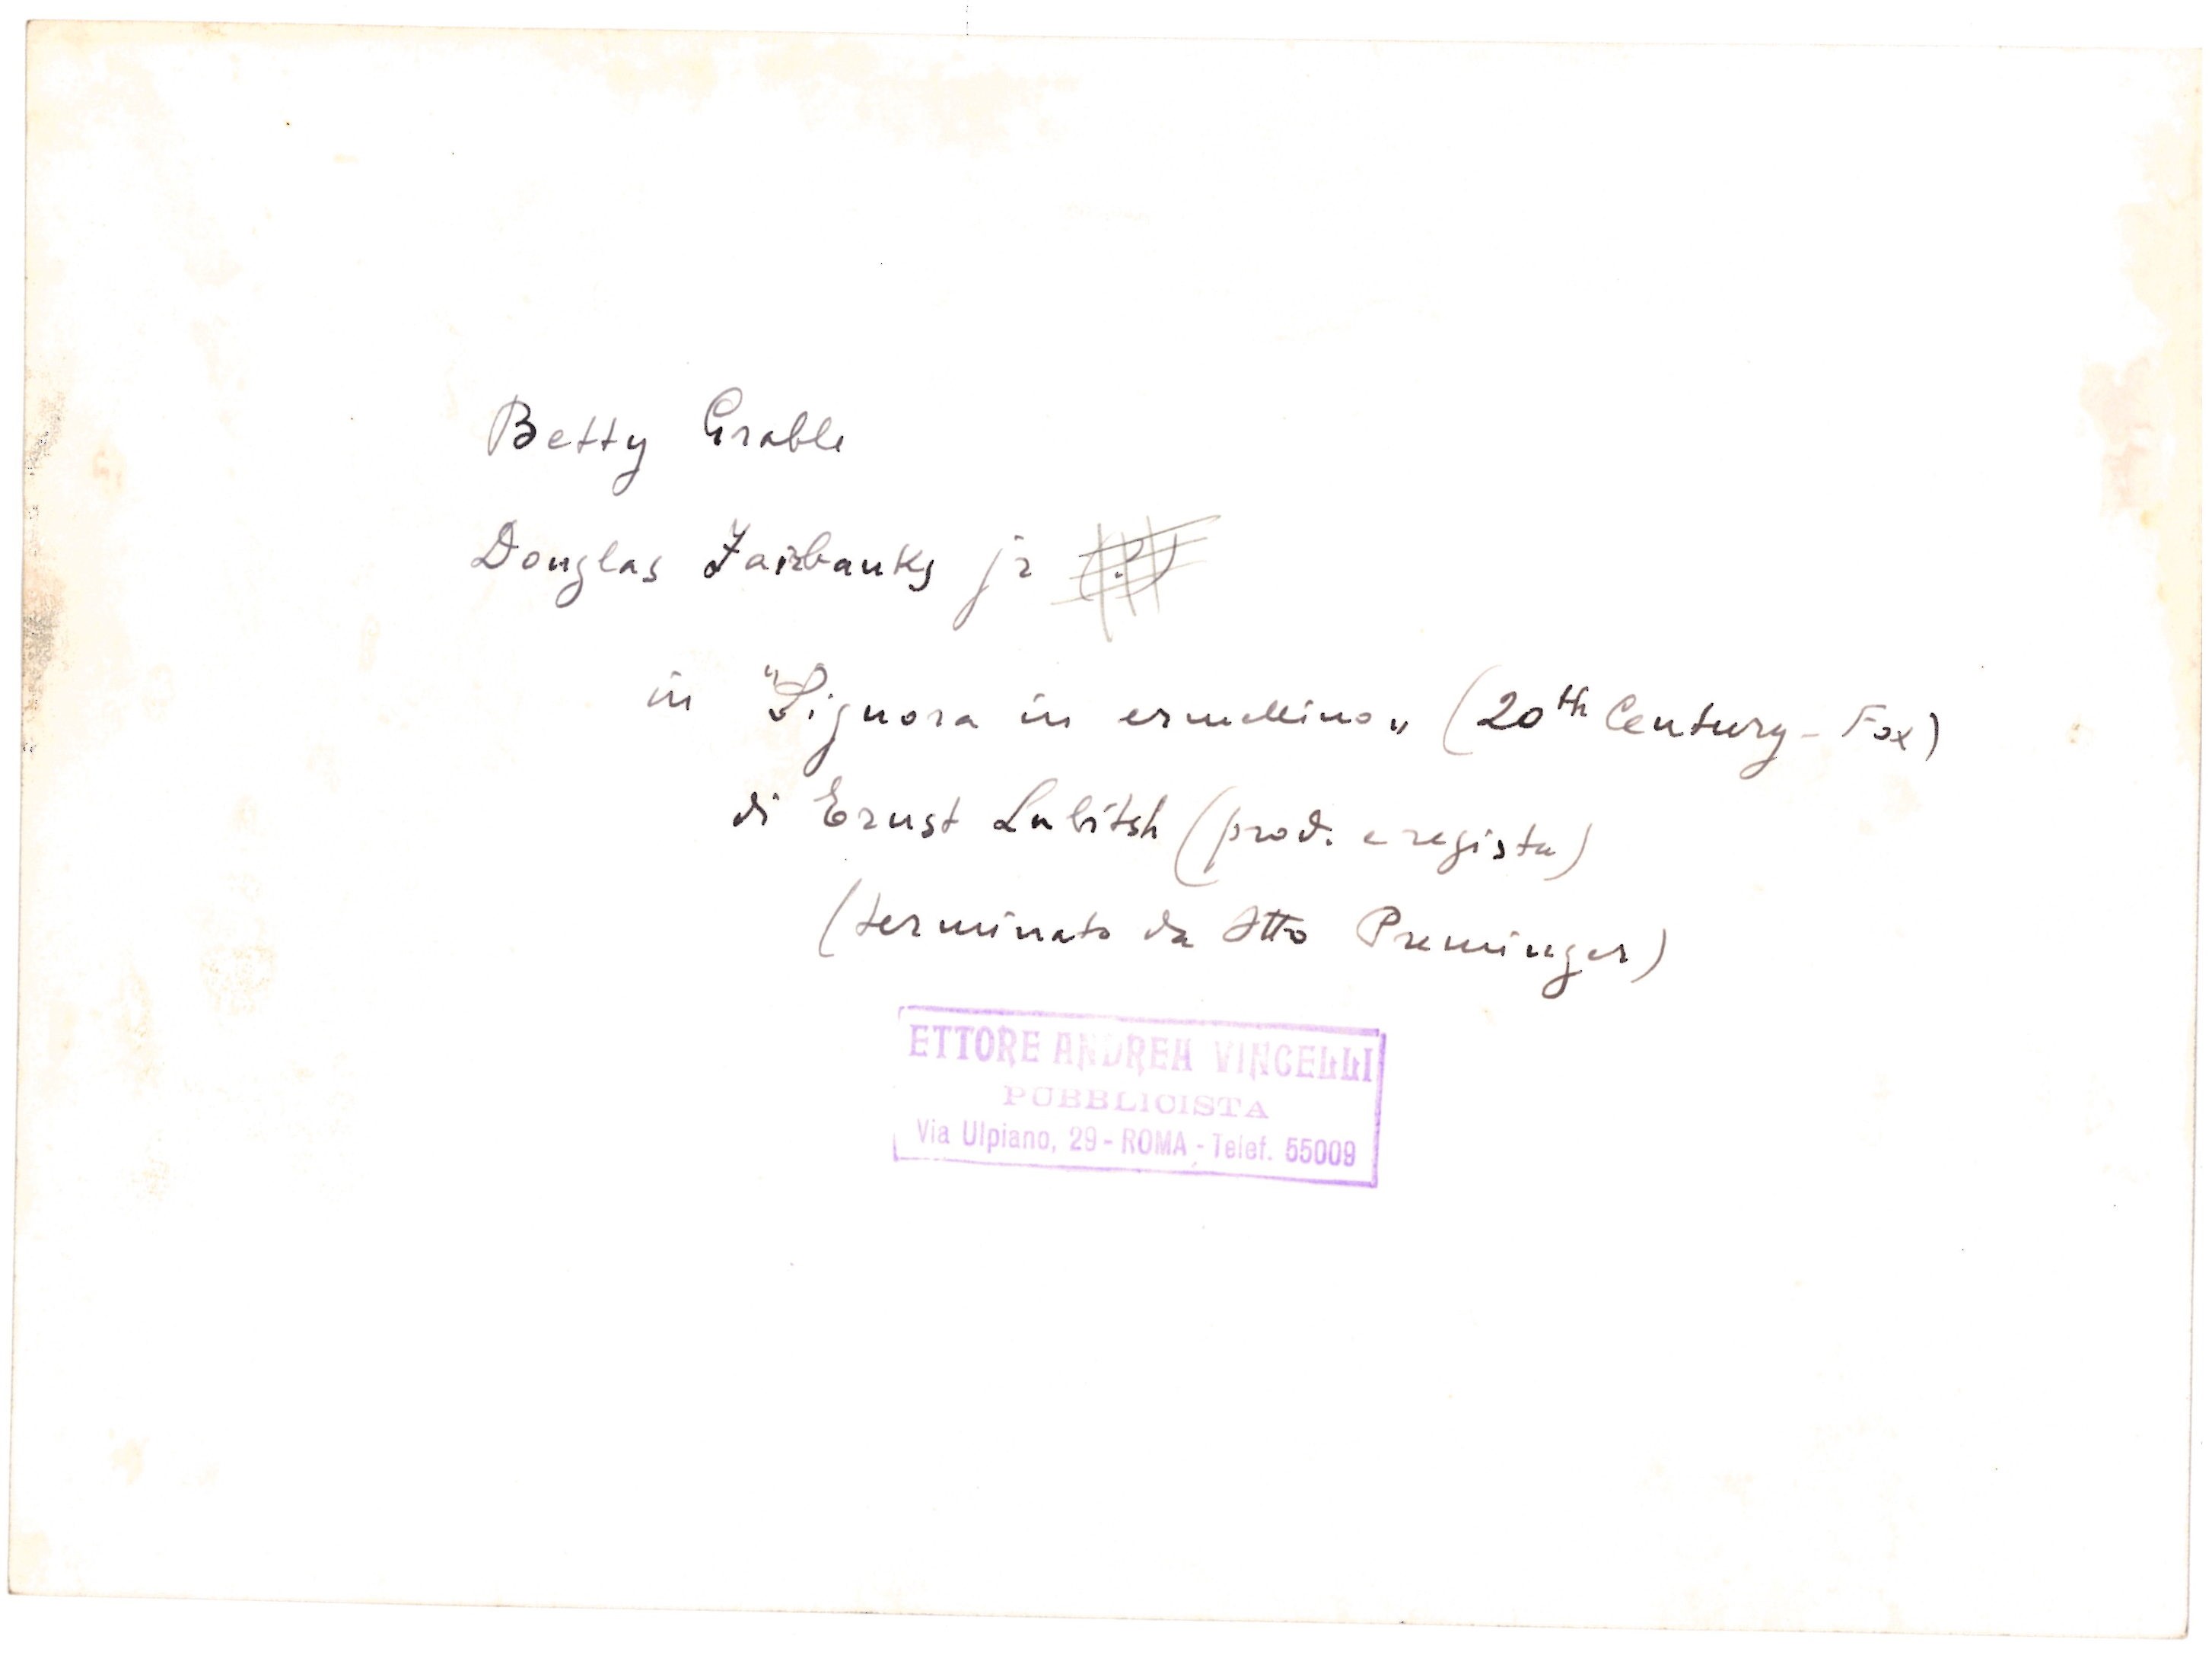 Betty Grable
Douglas Fairbanks jr
in "Signora in ermellino„ (20th Century - Fox)
di Ernst Lubitsh (prod. e regista)
(terminato da Otto Preminger)
ETTORE ANDREA VINCELLI
PUBBLICISTA
Via Ulpiano, 29 - ROMA - Telef. 55009